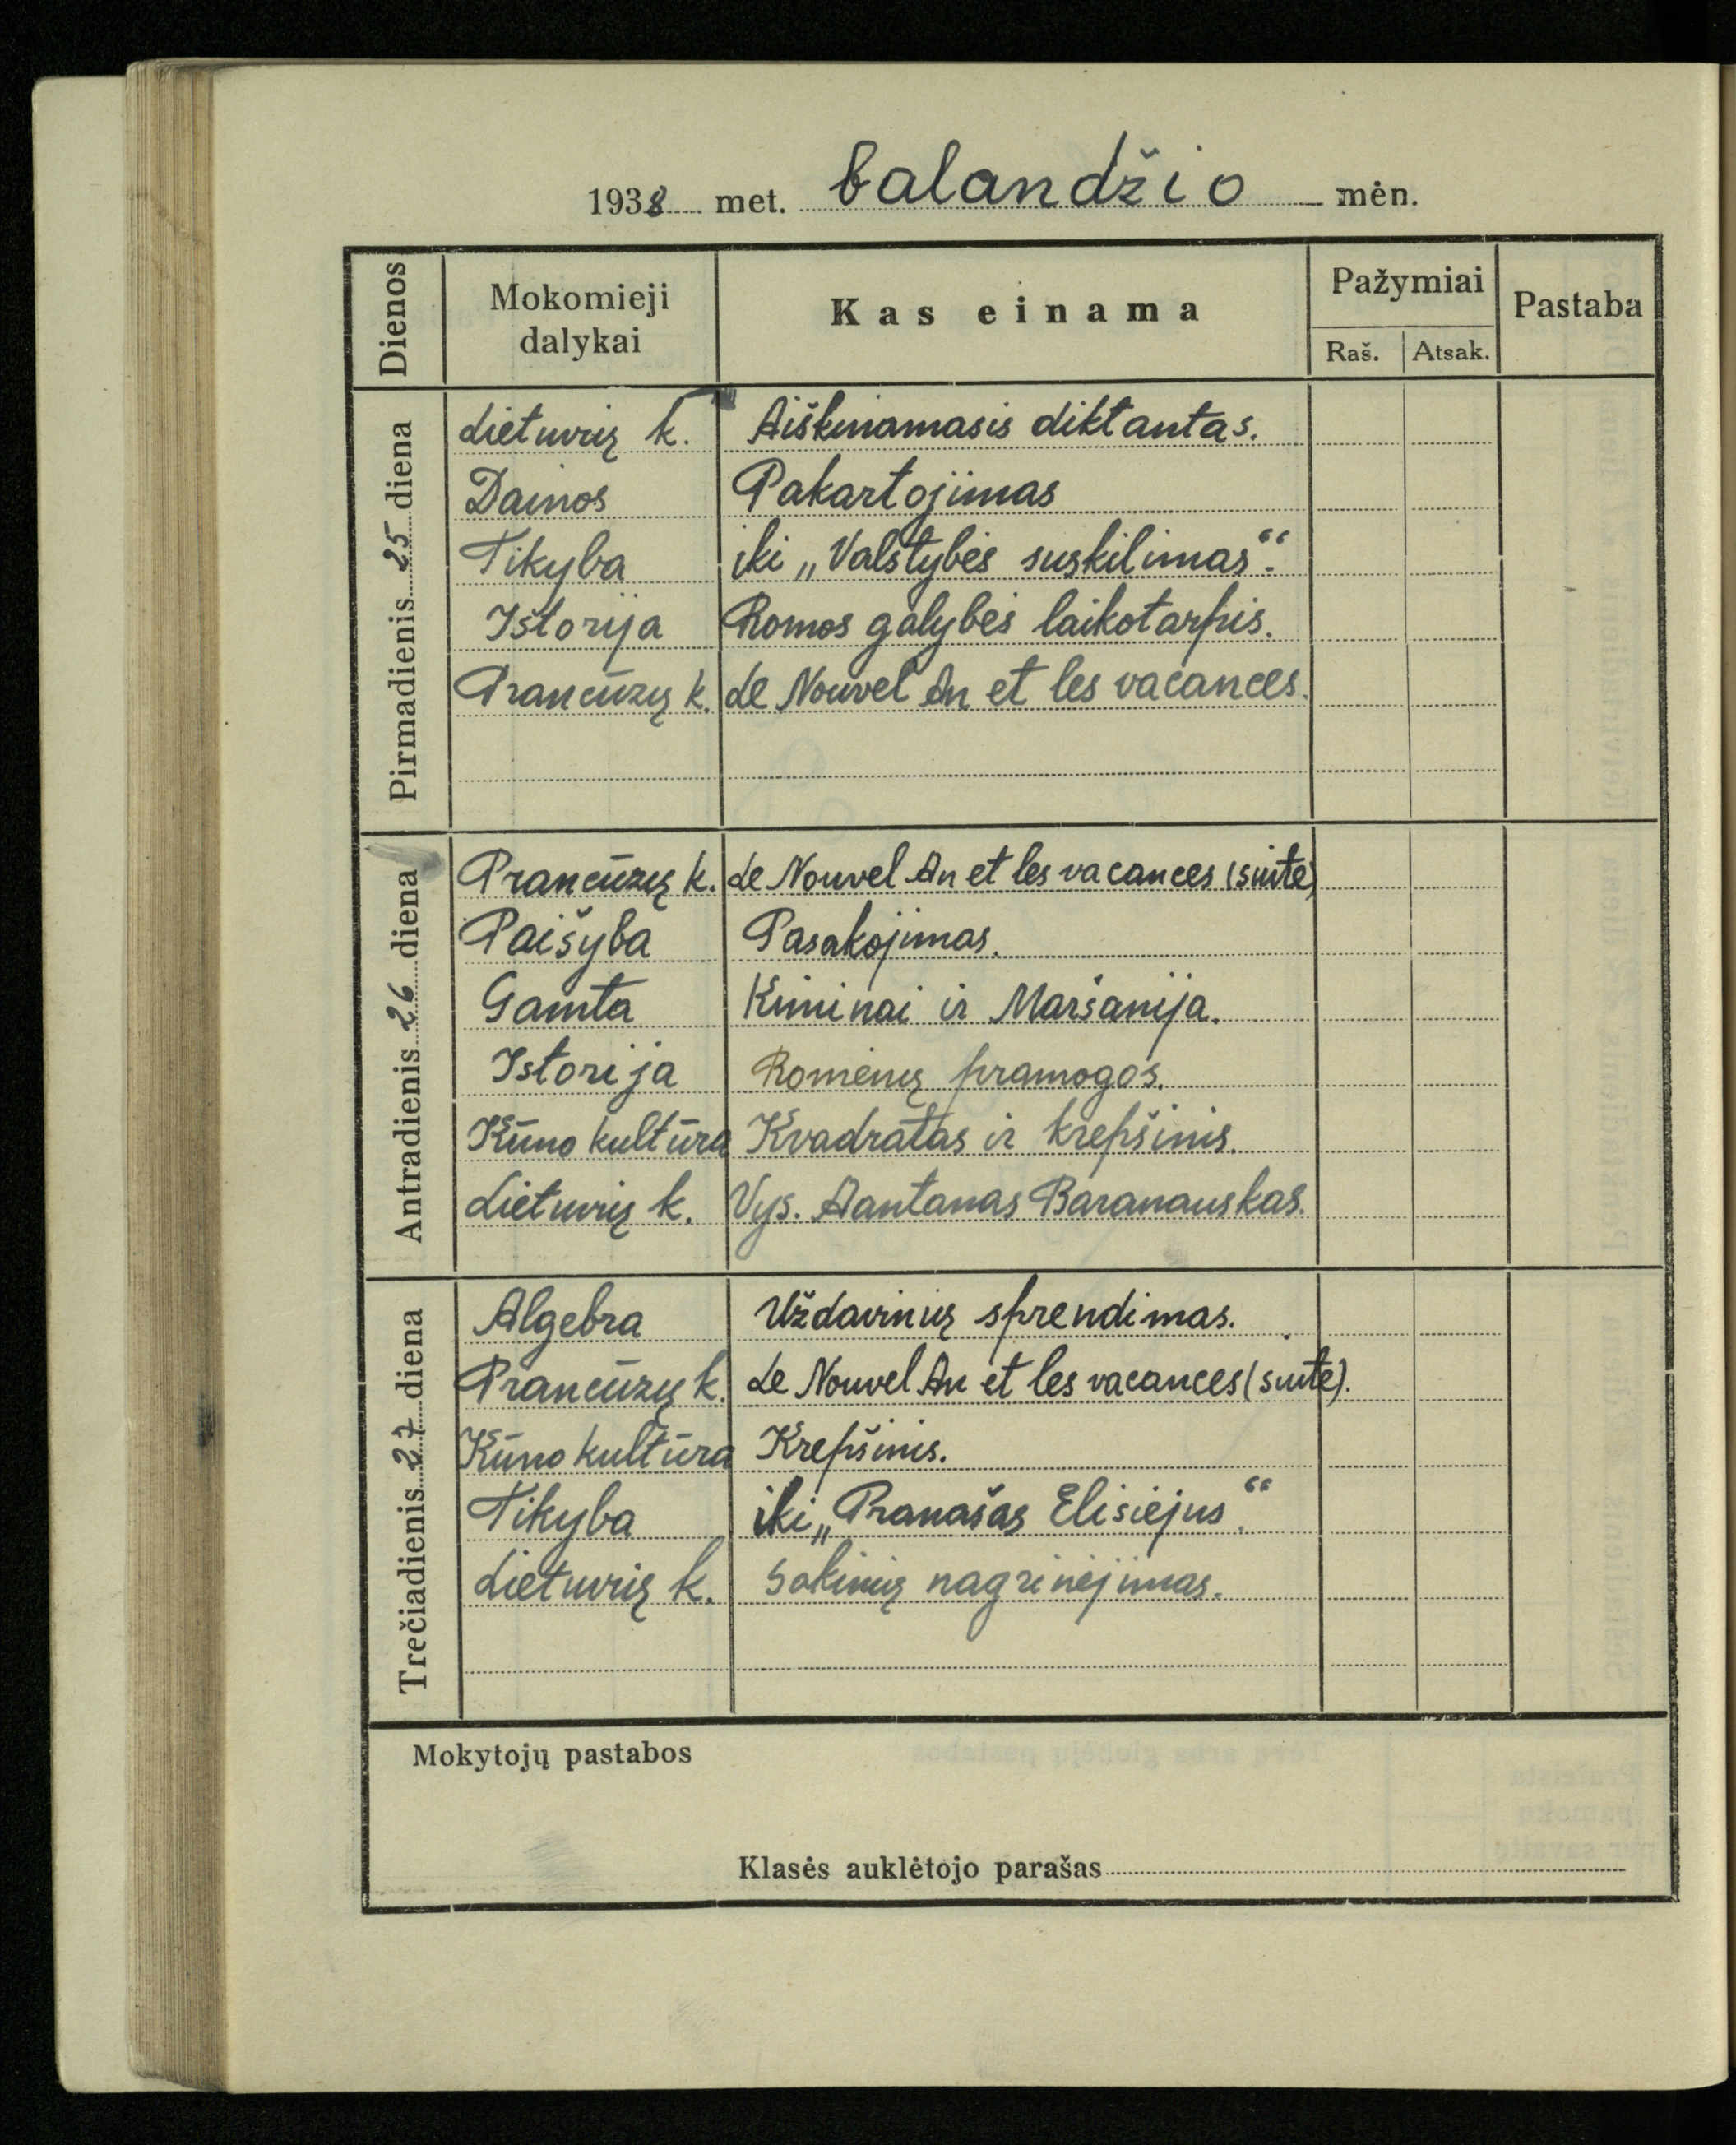 1938 met. balandžio mėn.
Dienos Mokomieji dalykai Kas einama Pažymiai Pastaba
Raš. Atsak.
Pirmadienis 25 diena
Lietuvių k. Aiškinamasis diktantas.
Dainos Pakartojimas
Tikyba iki „Valstybės suskilimas“.
Istorija Romos galybės laikotarpis.
Prancūzų k. Le Nouvel An et les vacances.
Antradienis 26 diena
Prancūzų k. Le Nouvel An et les vacances (suite)
Paišyba Pasakojimas.
Gamta Kiminai ir Maršanija.
Istorija Romėnų pramogos.
Kūno kultūra Kvadratas ir krepšinis.
Lietuvių k. Vys. Aantanas Baranauskas.
Trečiadienis 27 diena
Algebra Uždavinių sprendimas.
Prancūzų k. Le Nouvel An et les vacances (suite).
Kūno kultūra Krepšinis.
Tikyba iki „Pranašas Elisiejus“.
Lietuvių k. Sakinių nagrinėjimas.
Mokytojų pastabos
Klasės auklėtojo parašas